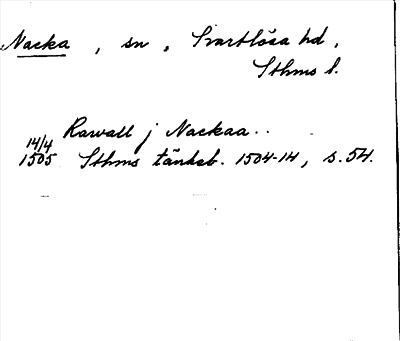 Nacka, sn, Svartlösa hd,
Sthms l.
Rawall j Nackaa..
14/4
1505 Sthms tänkeb. 1504-14, s. 54.